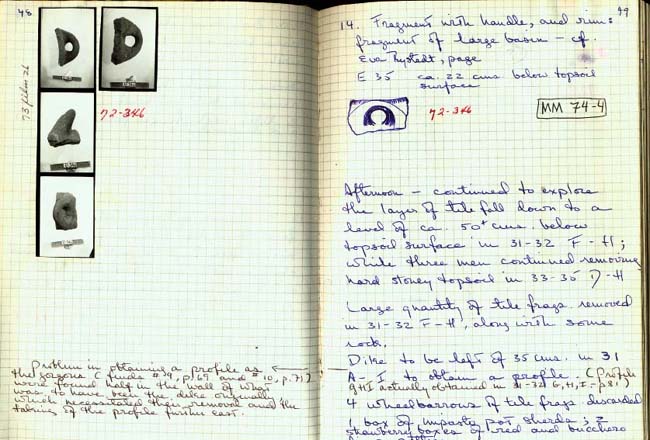 48
73 film 26
72-346
Problem in obtaining a profile as
the gorgons (finds #9, p. 69 and #10, p. 71)
were found half in the wall of what
was to have been the dike originally
which necessitated their removal and the
taking of the profile further east.
49
14. Fragment with handle, and rim:
fragment of large basin – cf.
Eva Rystedt, page
E 35 ca. 22 cms below topsoil
surface
72-346
MM 74-4
Afternoon – continued to explore
the layer of tile fall down to a
level of ca. 50+ cms. below
topsoil surface in 31-32 F-H;
while three men continued removing
hard stoney topsoil in 33-35 D-H
Large quantity of tile frags. removed
in 31-32 F-H, along with some
rock.
Dike to be left of 35 cms. in 31
A-I to obtain a profile. (Profile
actually obtained in 31-32 G, H, I - p 81)
4 wheelbarrows of tile frags discarded
1 box of impasto pot sherds; 2
strawberry boxes of red and bucchero